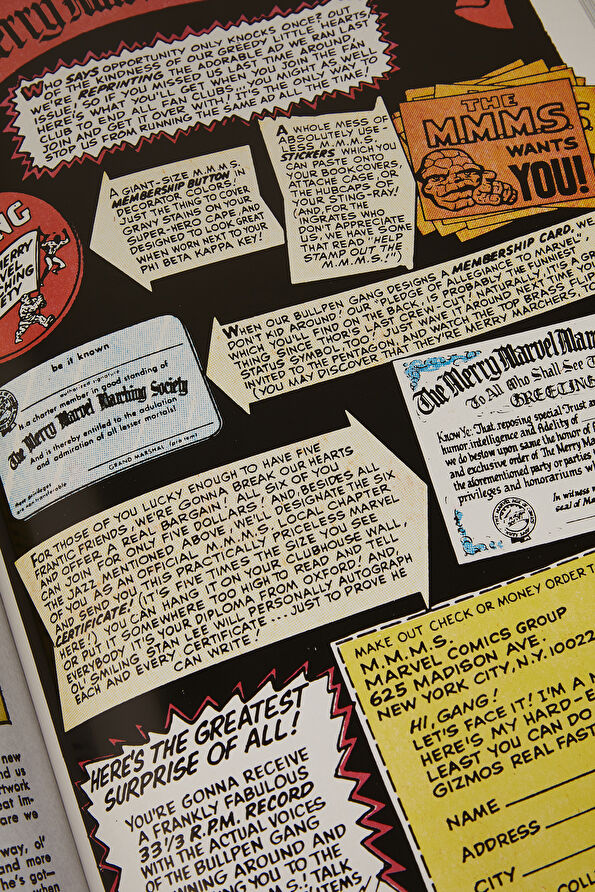 Merry Mar
WHO SAYS OPPORTUNITY ONLY KNOCKS ONCE? OUT
OF THE KINDNESS OF OUR GREEDY LITTLE HEARTS,
WE'RE REPRINTING THE ADORABLE AD WE RAN LAST
ISSUE! SO IF YOU MISSED US LAST TIME AROUND,
HERE'S WHAT YOU'LL GET WHEN YOU JOIN THE FAN
CLUB TO END ALL FAN CLUBS... YOU MIGHT AS WELL
JOIN AND GET IT OVER WITH! IT'S THE ONLY WAY TO
STOP US FROM RUNNING THE SAME AD ALL THE TIME!
A GIANT-SIZE M.M.M.S.
MEMBERSHIP BUTTON IN
DECORATOR COLORS,
JUST THE THING TO COVER
GRAVY STAINS ON YOUR
SUPER-HERO CAPE, AND
DESIGNED TO LOOK GREAT
WHEN WORN NEXT TO YOUR
PHI BETA KAPPA KEY!
A WHOLE MESS OF
ABSOLUTELY USE-
LESS M.M.M.S.
STICKERS WHICH YOU
CAN PASTE ONTO
YOUR BOOKCOVERS,
ATTACHE CASE, OR
THE HUBCAPS OF
YOUR STING-RAY!
(AND FOR THE
INGRATES WHO
DON'T APPRECIATE
US, WE HAVE SOME
THAT READ "HELP
STAMP OUT THE
M.M.M.S.!")
THE
M.M.M.S.
WANTS
YOU!
NG
MERRY
VEL
CHING
ETY
WHEN OUR BULLPEN GANG DESIGNS A MEMBERSHIP CARD, WE
DON'T KID AROUND! OUR "PLEDGE OF ALLEGIANCE TO MARVEL",
WHICH YOU'LL FIND ON THE BACK, IS PROBABLY THE FUNNIEST
THING SINCE THOR'S LAST CREW CUT! NATURALLY, IT'S A GR
STATUS SYMBOL, TOO! JUST WAVE IT AROUND NEXT TIME YOU'
INVITED TO THE PENTAGON, AND WATCH THE TOP BRASS FLIP
(YOU MAY DISCOVER THAT THEY'RE MERRY MARCHERS,
be it known
authorized signature
is a charter member in good standing of
The Merry Marvel Marching Society
And is hereby entitled to the adulation
and admiration of all lesser mortals!
GRAND MARSHAL (pro tem)
these privileges
are non-transferable
The Merry Marvel Mar
To All Who Shall See T
GREETING
Know Ye: That reposing special Trust an
humor, intelligence and fidelity of
we do bestow upon same the honor of
and exclusive order of The Merry Ma
the aforementioned party or parties
privileges and honorariums wh
In witness
seal of Ma
FOR THOSE OF YOU LUCKY ENOUGH TO HAVE FIVE
FRANTIC FRIENDS, WE'RE GONNA BREAK OUR HEARTS
AND OFFER A REAL BARGAIN! ALL SIX OF YOU
CAN JOIN FOR ONLY FIVE DOLLARS! AND, BESIDES ALL
THE JAZZ MENTIONED ABOVE, WE'LL DESIGNATE THE SIX
OF YOU AS AN OFFICIAL M.M.M.S. LOCAL CHAPTER,
AND SEND YOU THIS PRACTICALLY PRICELESS MARVEL
CERTIFICATE! (IT'S FIVE TIMES THE SIZE YOU SEE
HERE!) YOU CAN HANG IT ON YOUR CLUBHOUSE WALL,
OR PUT IT SOMEWHERE TOO HIGH TO READ AND TELL
EVERYBODY IT'S YOUR DIPLOMA FROM OXFORD! AND,
OL' SMILING STAN LEE WILL PERSONALLY AUTOGRAPH
EACH AND EVERY CERTIFICATE --- JUST TO PROVE HE
CAN WRITE!
HERE'S THE GREATEST
SURPRISE OF ALL!
YOU'RE GONNA RECEIVE
A FRANKLY FABULOUS
33 1/3 R.P.M. RECORD
WITH THE ACTUAL VOICES
OF THE BULLPEN GANG
NNING AROUND AND
ING YOU TO THE
M.S.! TALK
ITEMS,
MAKE OUT CHECK OR MONEY ORDER T
M.M.M.S.
MARVEL COMICS GROUP
625 MADISON AVE.
NEW YORK CITY, N.Y. 10022
HI, GANG!
LET'S FACE IT! I'M A N
HERE'S MY HARD-E
LEAST YOU CAN DO
GIZMOS REAL FAST
NAME
ADDRESS
CITY
new
nd us
rtwork
eat Im-
are we
way, ol'
and more
he's got—
when